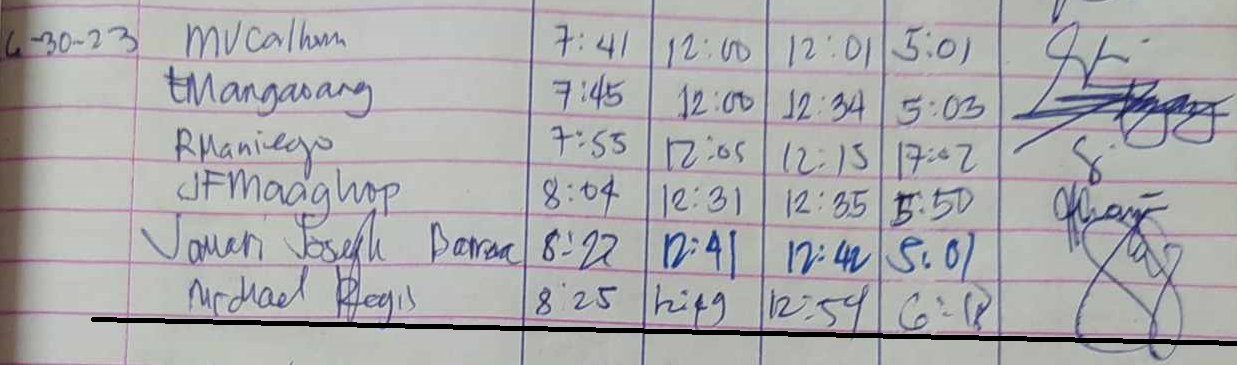 6-30-23 MVCalhom 7:41 12:00 12:01 5:01
EMangaoang 7:45 12:00 12:34 5:03
RManiego 7:55 12:05 12:15 17:02
JFMaaghop 8:04 12:31 12:35 5:50
Joseph 8:22 12:41 12:42 5:01
Michael Regis 8:25 12:49 12:54 6:18